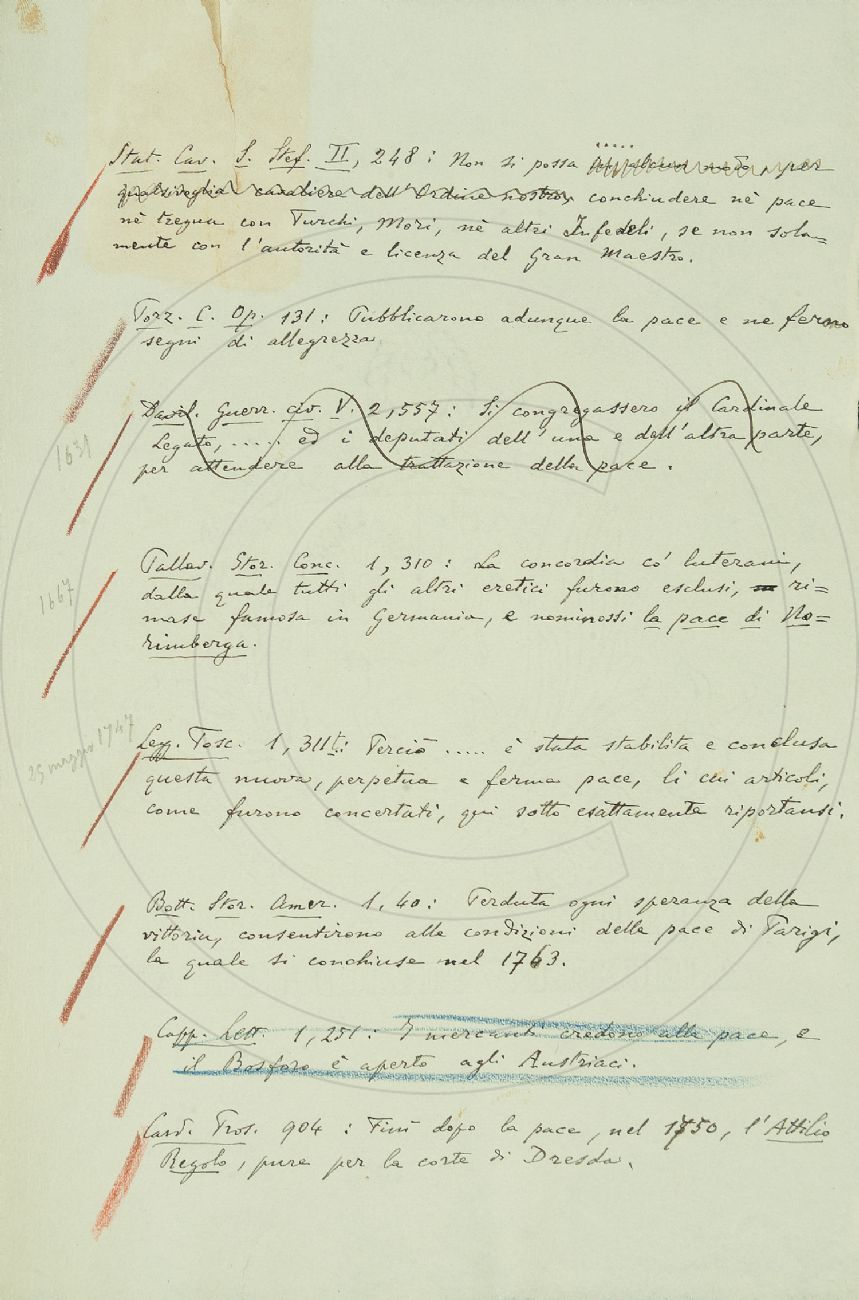 Stat. Cav. S. Stef. II, 248: Non si possa ..... in alcun modo, per
qualsivoglia cavaliere dell'Ordine nostro, conchiudere nè pace
nè tregua con Turchi, Mori, nè altri Infedeli, se non sola=
mente con l'autorità e licenza del Gran Maestro.
Forz. C. Op. 131: Pubblicarono adunque la pace e ne ferono
segni di allegrezza.
1631
Davil. Guerr. civ. V. 2,557: Si congregassero il Cardinale
Legato, ..... ed i deputati dell'una e dell'altra parte,
per attendere alla trattazione della pace.
1667
Pallav. Stor. Conc. 1, 310: La concordia co' luterani,
dalla quale tutti gli altri eretici furono esclusi, ri=
mase famosa in Germania, e nominossi la pace di No=
rimberga.
25 maggio 1747
Legg. Tosc. 1, 311t: Perciò ..... è stata stabilita e conclusa
questa nuova, perpetua e ferma pace, li cui articoli,
come furono concertati, qui sotto esattamente riportansi.
Bott. Stor. Amer. 1, 40: Perduta ogni speranza della
vittoria, consentirono alle condizioni della pace di Parigi,
la quale si conchiuse nel 1763.
Capp. Lett. 1, 251: I mercanti credono alla pace, e
il Bosforo è aperto agli Austriaci.
Card. Pros. 904: Finì dopo la pace, nel 1750, l'Attilio
Regolo, pure per la corte di Dresda.